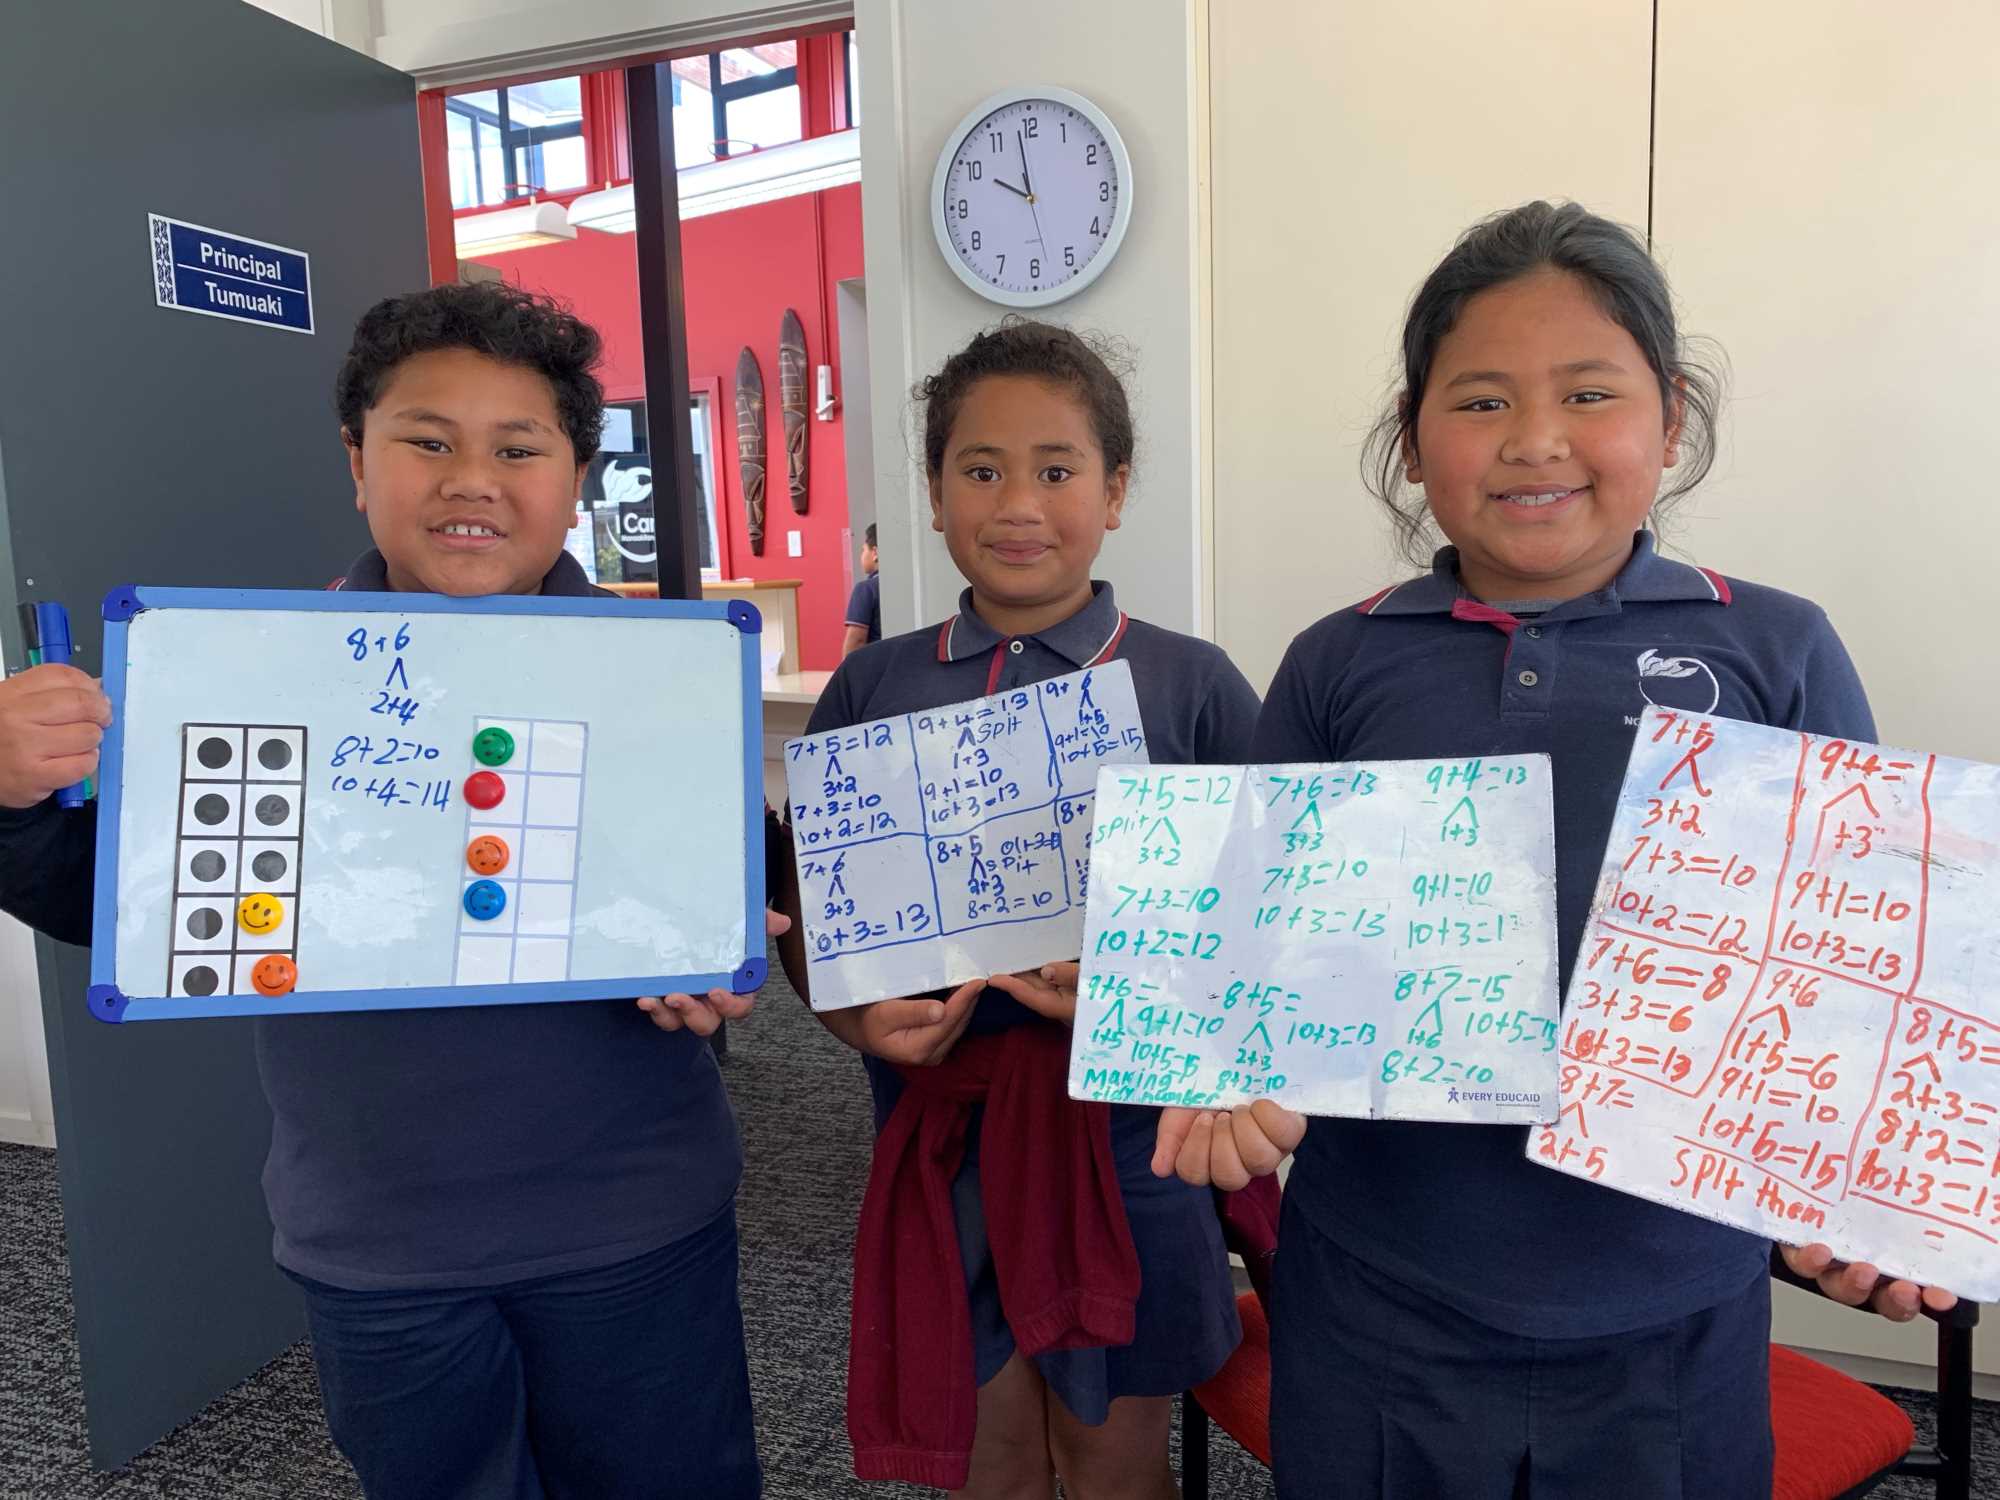 Principal
Tumuaki
12
1
2
3
4
5
6
7
8
9
10
11
I Car
8+6
2+4
8+2=10
10+4=14
7+5=12
3+2
7+3=10
10+2=12
9+4=13
Split
1+3
9+1=10
10+3=13
9+6
1+5
9+1=10
10+5=15
7+6
3+3
10+3=13
8+5
Split
2+3
8+2=10
8+
7+5=12
split
3+2
7+3=10
10+2=12
7+6=13
3+3
7+3=10
10+3=13
9+4=13
1+3
9+1=10
10+3=1
9+6=
1+5
9+1=10
10+5=15
Making
tidy number
8+5=
2+3
10+3=13
8+2=10
8+7=15
1+6
10+5=15
8+2=10
EVERY EDUCAID
7+5
3+2
7+3=10
10+2=12
9+4=
+3
9+1=10
10+3=13
7+6=8
3+3=6
10+3=13
9+6
1+5=6
9+1=10
10+5=15
8+5=
2+3=
8+2=1
10+3=13
=
8+7=
2+5
Split them